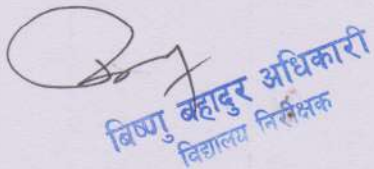 बिष्णु बहादुर अधिकारी
विद्यालय निरीक्षक